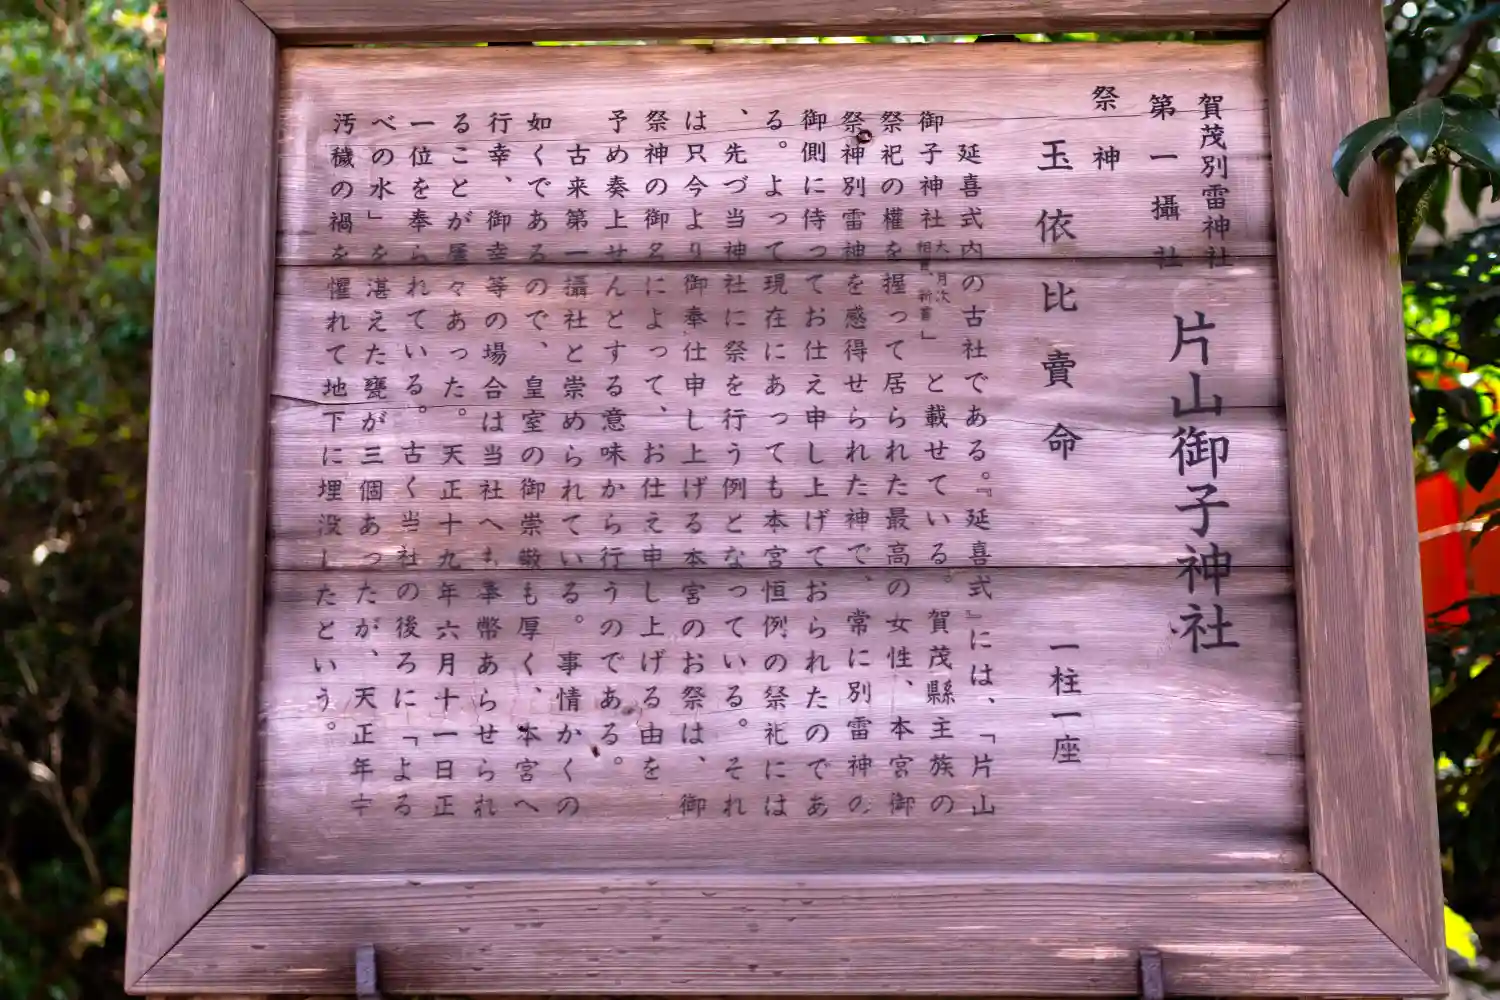 賀茂別雷神社
第一攝社 片山御子神社
祭神
玉依比賣命 一柱一座
延喜式内の古社である。『延喜式』には、「片山
御子神社 大月次相嘗、新嘗」 と載せている。賀茂縣主族の
祭祀の權を握って居られた最高の女性、本宮御
祭神別雷神を感得せられた神で、常に別雷神の
御側に侍ってお仕え申し上げておられたのであ
る。よって現在にあっても本宮恒例の祭祀には
、先づ当神社に祭を行う例となっている。それ
は只今より御奉仕申し上げる本宮のお祭は、御
祭神の御名によって、お仕え申し上げる由を
予め奏上せんとする意味から行うのである。
古来第一攝社と崇められている。事情かくの
如くであるので、皇室の御崇敬も厚く、本宮へ
行幸、御幸等の場合は当社へも奉幣あらせられ
ることが屡々あった。天正十九年六月十一日正
一位を奉られている。古く当社の後ろに「よる
べの水」を湛えた甕が三個あったが、天正年中
汚穢の禍を懼れて地下に埋没したという。